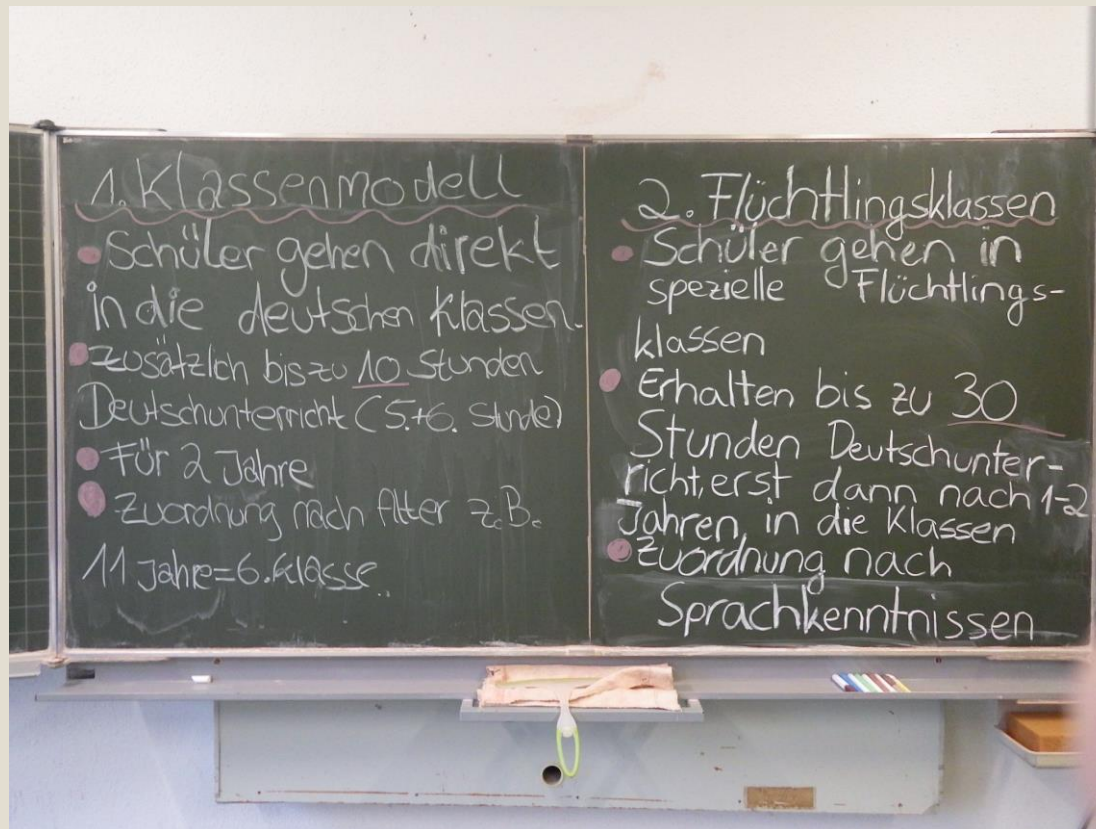 1. Klassenmodell
• Schüler gehen direkt
in die deutschen Klassen.
• zusätzlich bis zu 10 Stunden
Deutschunterricht (5.+6. Stunde)
• Für 2 Jahre
• Zuordnung nach Alter z.B.
11 Jahre=6.Klasse
2. Flüchtlingsklassen
• Schüler gehen in
spezielle Flüchtlings-
klassen
• Erhalten bis zu 30
Stunden Deutschunter-
richt, erst dann nach 1-2
Jahren in die Klassen
• Zuordnung nach
Sprachkenntnissen